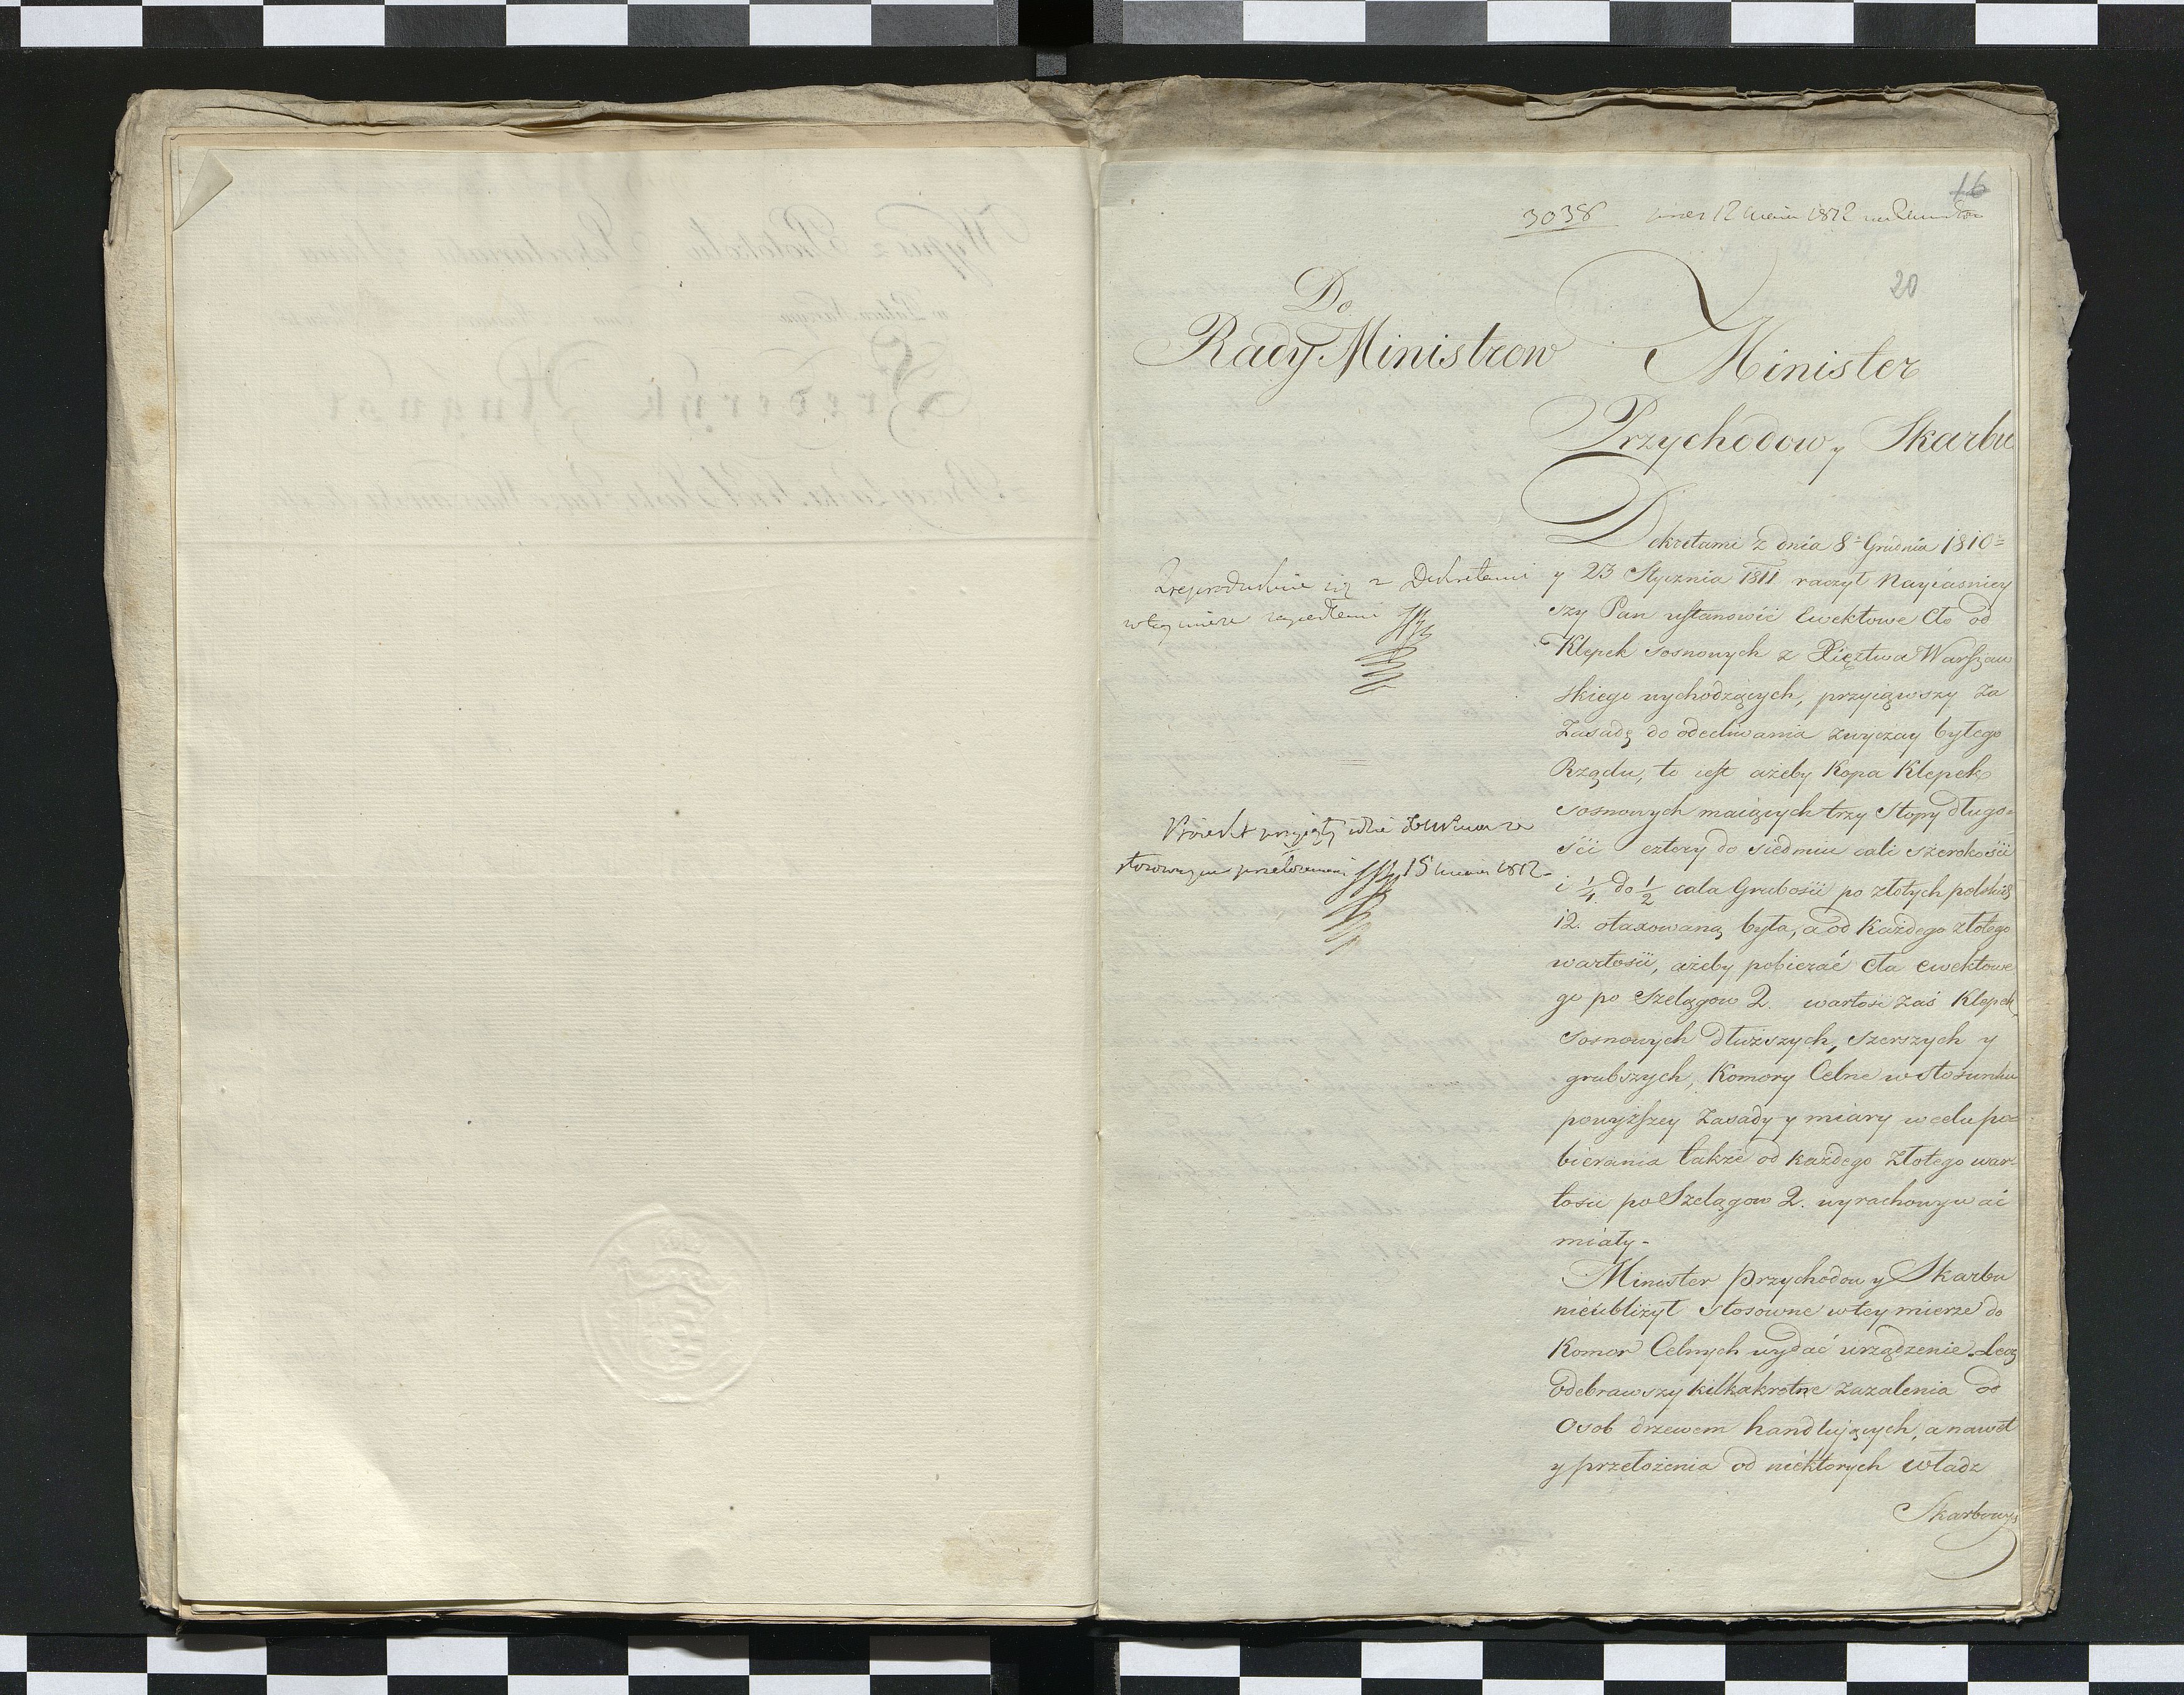 16
3038 12 1812
20
Do
Rady Ministrow
Minister
Przychodow y Skarbu
Dekretami z dnia 8º Grudnia 1810º
y 23 Stycznia 1811 raczył Nayiasniey
szy Pan ustanowić Ewektowe Cło od
Klepek sosnowych z Xięztwa Warszaw
skiego wychodzących, przyiąwszy za
Zasadę do odecliwania zwyczay byłego
Rządu, to iest ażeby Kopa Klepek
sosnowych maiących trzy Stopy długo=
ści cztery do siedmiu cali szerokości
i 1/4 do 1/2 cala Grubości po złotych polskich
12. otaxowaną była, a od Każdego złotego
wartości, ażeby pobierać Cła ewektowe
go po Szelągow 2. wartość zaś Klepek
sosnowych dłuższych, szerszych y
grubszych, Komory Celne w stosunku
powyższey Zasady y miary w celu po=
bierania także od każdego Złotego war=
tości po Szelągow 2. wyrachowywać
miały-
Minister Przychodow y Skarbu
nieubliżył stosowne w tey mierze do
Komor Celnych wydać urządzenie. Lecz
Odebrawszy kilkakrotne zażalenia od
Osob drzewem handlujących, a nawet
y przełożenia od niektorych Władz
Skarbowych
z Dekretami
w tey mierze
Proiekt przyięty
15 1812